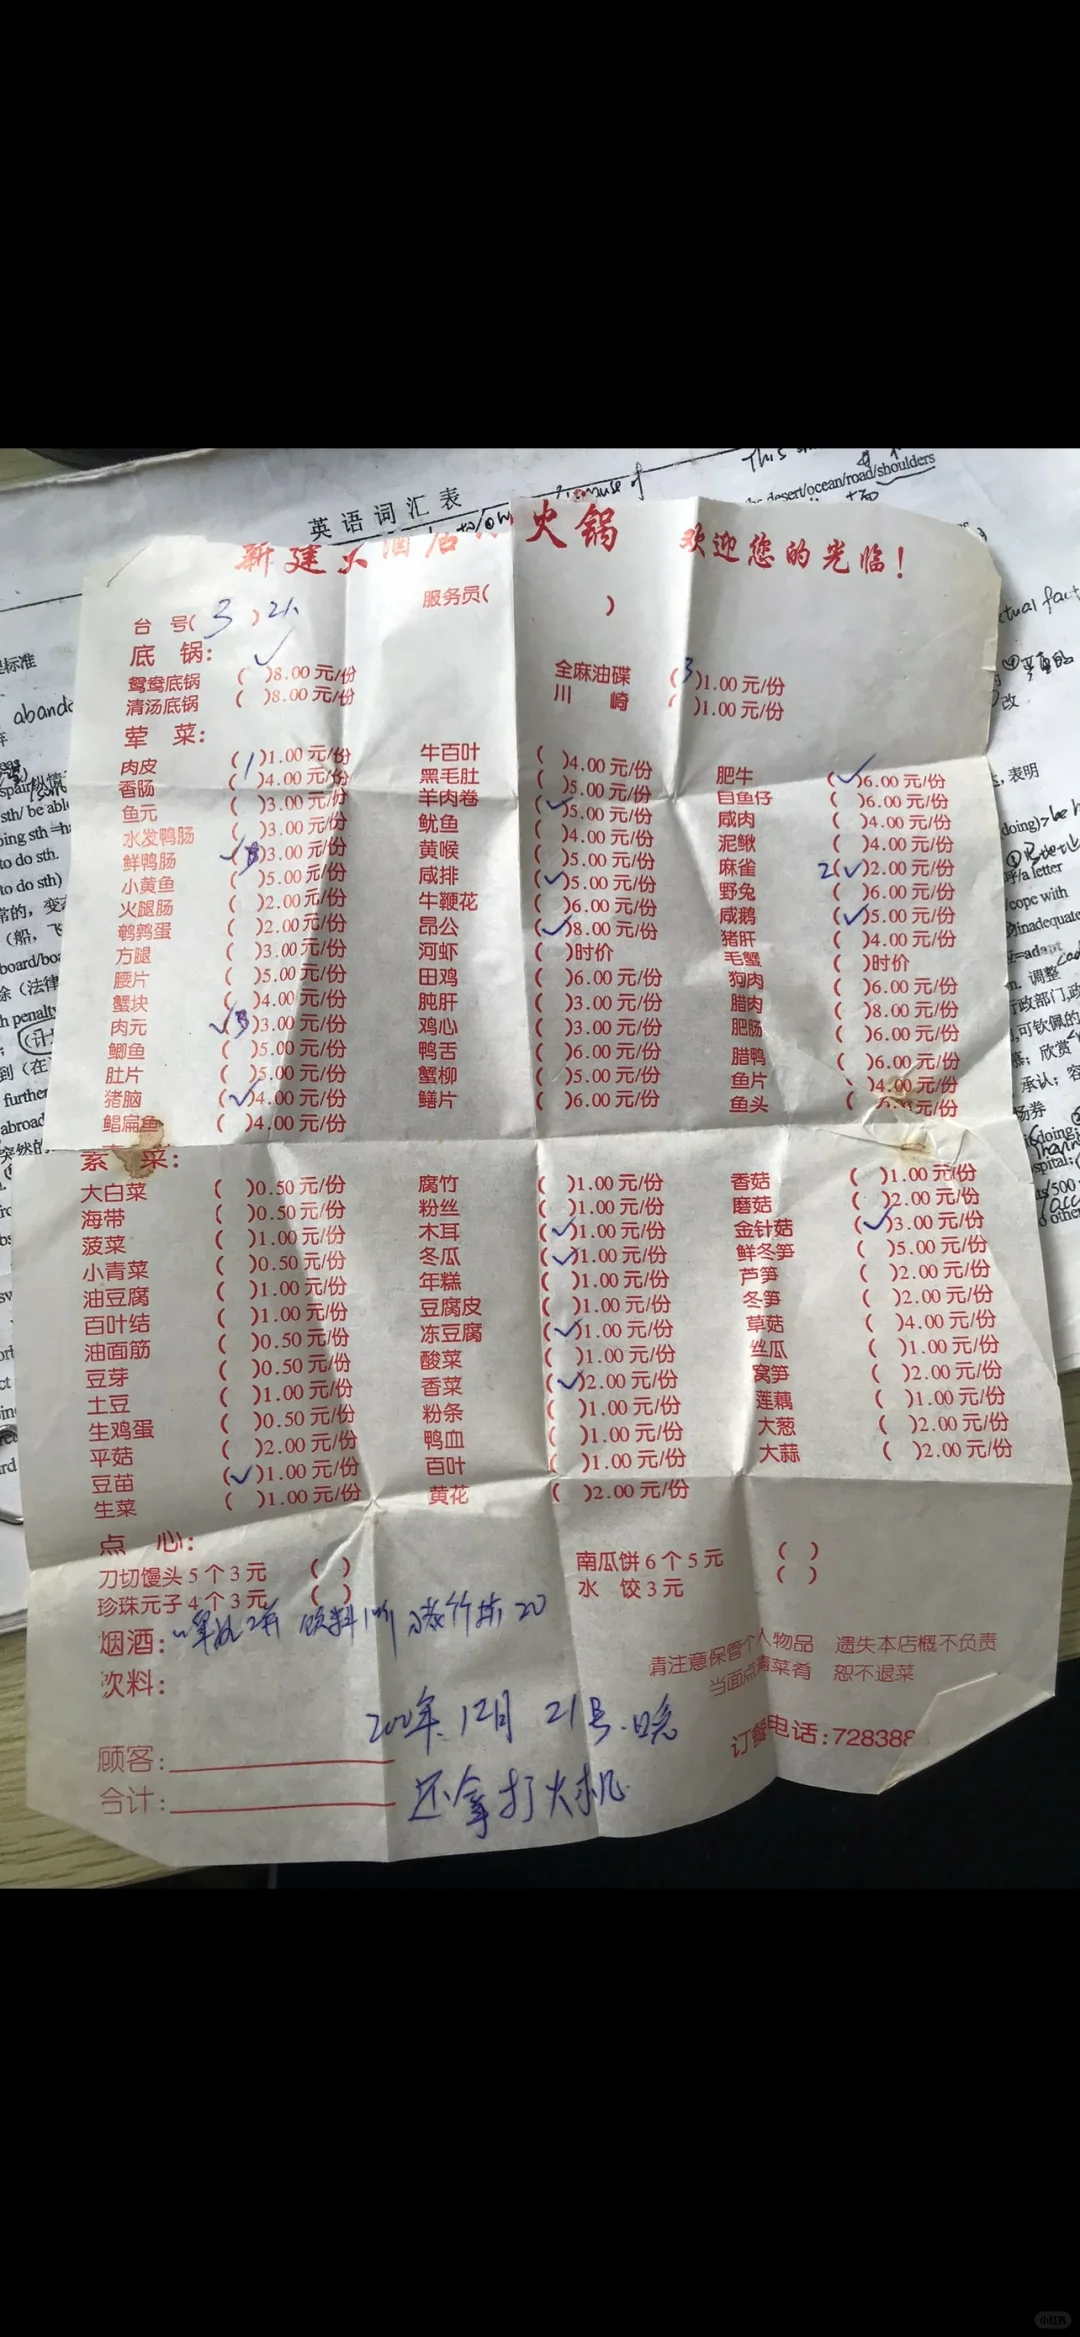 英语词汇表
desert/ocean/road/shoulders
新建火酒店 火锅 欢迎您的光临!
台 号( 3 ) 服务员( )
底 锅:
鸳鸯底锅 (✓)8.00 元/份 全麻油碟 (3)1.00 元/份
清汤底锅 ( )8.00 元/份 川 崎 ( )1.00 元/份
荤 菜:
肉皮 (1)1.00 元/份 牛百叶 ( )4.00 元/份 肥牛 (✓)6.00 元/份
香肠 ( )4.00 元/份 黑毛肚 ( )5.00 元/份 自鱼仔 ( )6.00 元/份
鱼元 ( )3.00 元/份 羊肉卷 (✓)5.00 元/份 咸肉 ( )4.00 元/份
水发鸭肠 ( )3.00 元/份 鱿鱼 ( )4.00 元/份 泥鳅 ( )4.00 元/份
鲜鸭肠 (✓)3.00 元/份 黄喉 ( )5.00 元/份 麻雀 2(✓)2.00 元/份
小黄鱼 ( )5.00 元/份 咸排 (✓)5.00 元/份 野兔 ( )6.00 元/份
火腿肠 ( )2.00 元/份 牛鞭花 ( )6.00 元/份 咸鹅 (✓)5.00 元/份
鹌鹑蛋 ( )2.00 元/份 昂公 (✓)8.00 元/份 猪肝 ( )4.00 元/份
方腿 ( )3.00 元/份 河虾 ( )时价 毛蟹 ( )时价
腰片 ( )5.00 元/份 田鸡 ( )6.00 元/份 狗肉 ( )6.00 元/份
蟹块 ( )4.00 元/份 肫肝 ( )3.00 元/份 腊肉 ( )8.00 元/份
肉元 (✓)3.00 元/份 鸡心 ( )3.00 元/份 肥肠 ( )6.00 元/份
鲫鱼 ( )5.00 元/份 鸭舌 ( )6.00 元/份 腊鸭 ( )6.00 元/份
肚片 ( )5.00 元/份 蟹柳 ( )5.00 元/份 鱼片 ( )4.00 元/份
猪脑 (✓)4.00 元/份 鳝片 ( )6.00 元/份 鱼头 ( ) 元/份
鲳扁鱼 ( )4.00 元/份
素 菜:
大白菜 ( )0.50 元/份 腐竹 ( )1.00 元/份 香菇 ( )1.00 元/份
海带 ( )0.50 元/份 粉丝 ( )1.00 元/份 磨菇 ( )2.00 元/份
菠菜 ( )1.00 元/份 木耳 (✓)1.00 元/份 金针菇 (✓)3.00 元/份
小青菜 ( )0.50 元/份 冬瓜 (✓)1.00 元/份 鲜冬笋 ( )5.00 元/份
油豆腐 ( )1.00 元/份 年糕 ( )1.00 元/份 芦笋 ( )2.00 元/份
百叶结 ( )1.00 元/份 豆腐皮 ( )1.00 元/份 冬笋 ( )2.00 元/份
油面筋 ( )0.50 元/份 冻豆腐 (✓)1.00 元/份 草菇 ( )4.00 元/份
豆芽 ( )0.50 元/份 酸菜 ( )1.00 元/份 丝瓜 ( )1.00 元/份
土豆 ( )1.00 元/份 香菜 (✓)2.00 元/份 窝笋 ( )2.00 元/份
生鸡蛋 ( )0.50 元/份 粉条 ( )1.00 元/份 莲藕 ( )1.00 元/份
平菇 ( )2.00 元/份 鸭血 ( )1.00 元/份 大葱 ( )2.00 元/份
豆苗 (✓)1.00 元/份 百叶 ( )1.00 元/份 大蒜 ( )2.00 元/份
生菜 ( )1.00 元/份 黄花 ( )2.00 元/份
点 心:
刀切馒头 5 个 3 元 ( ) 南瓜饼 6 个 5 元 ( )
珍珠元子 4 个 3 元 ( ) 水 饺 3 元 ( )
烟酒: 饮料1听 20
次料:
请注意保管个人物品 遗失本店概不负责
当面点清菜肴 恕不退菜
2000年 12月 21号.晚
订餐电话:728388
顾客:
合计: 还拿打火机
小红书